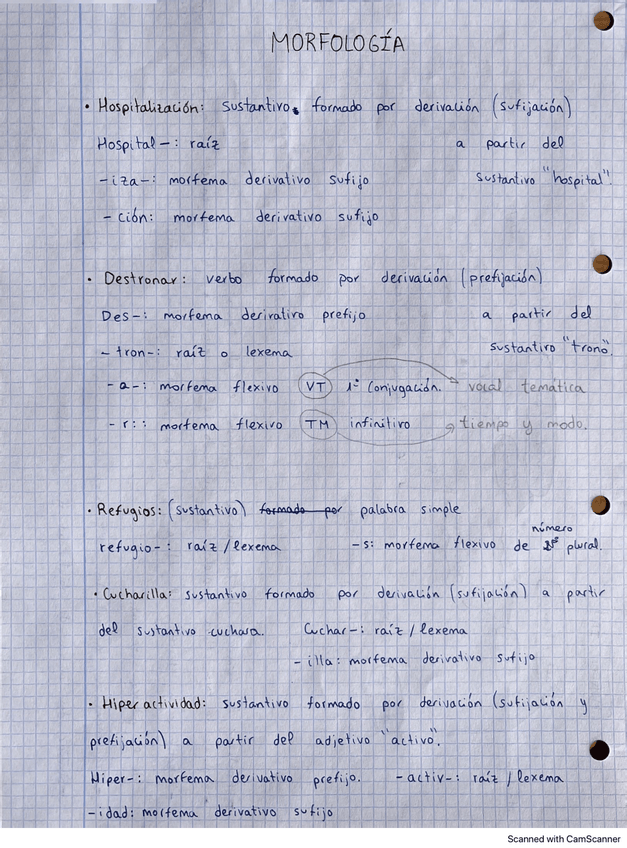 MORFOLOGÍA
• Hospitalización: sustantivo, formado por derivación (sufijación)
Hospital-: raíz a partir del
-iza-: morfema derivativo sufijo sustantivo "hospital".
- ción: morfema derivativo sufijo
• Destronar: verbo formado por derivación (prefijación)
Des-: morfema derivativo prefijo a partir del
- tron-: raíz o lexema sustantivo "trono".
- a-: morfema flexivo VT 1ª Conjugación. vocal temática
- r:: morfema flexivo TM infinitivo tiempo y modo.
• Refugios: (sustantivo) formado por palabra simple
número
refugio-: raíz/lexema -s: morfema flexivo de plural.
• Cucharilla: sustantivo formado por derivación (sufijación) a partir
del sustantivo cuchara. Cuchar-: raíz/lexema
- illa: morfema derivativo sufijo
• Hiperactividad: sustantivo formado por derivación (sufijación y
prefijación) a partir del adjetivo "activo".
Hiper-: morfema derivativo prefijo. -activ-: raíz/lexema
-idad: morfema derivativo sufijo
Scanned with CamScanner